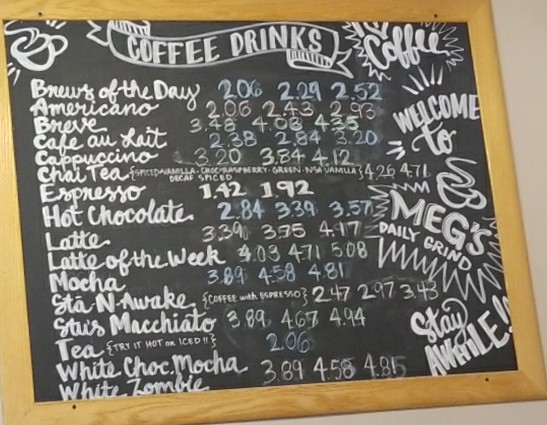 COFFEE DRINKS
Brews of the Day 2.06 2.29 2.52
Americano 2.06 2.43 2.93
Breve 3.48 4.08 4.35
Cafe au Lait 2.38 2.84 3.20
Cappuccino 3.20 3.84 4.12
Chai Tea {SPICED-VANILLA-CHOC-RASPBERRY-GREEN-NSA VANILLA} 4.26 4.71
DECAF SPICED
Espresso 1.42 1.92
Hot Chocolate 2.84 3.39 3.57
Latte 3.39 3.75 4.17
Latte of the Week 4.03 4.71 5.08
Mocha 3.89 4.58 4.81
Sta-N-Awake {COFFEE with ESPRESSO} 2.47 2.97 3.43
Stu's Macchiato 3.89 4.67 4.94
Tea {TRY IT HOT OR ICED!!} 2.06
White Choc. Mocha 3.89 4.58 4.85
White Zombie
Coffee
WELCOME
to
MEG'S
DAILY GRIND
Stay
AWHILE!